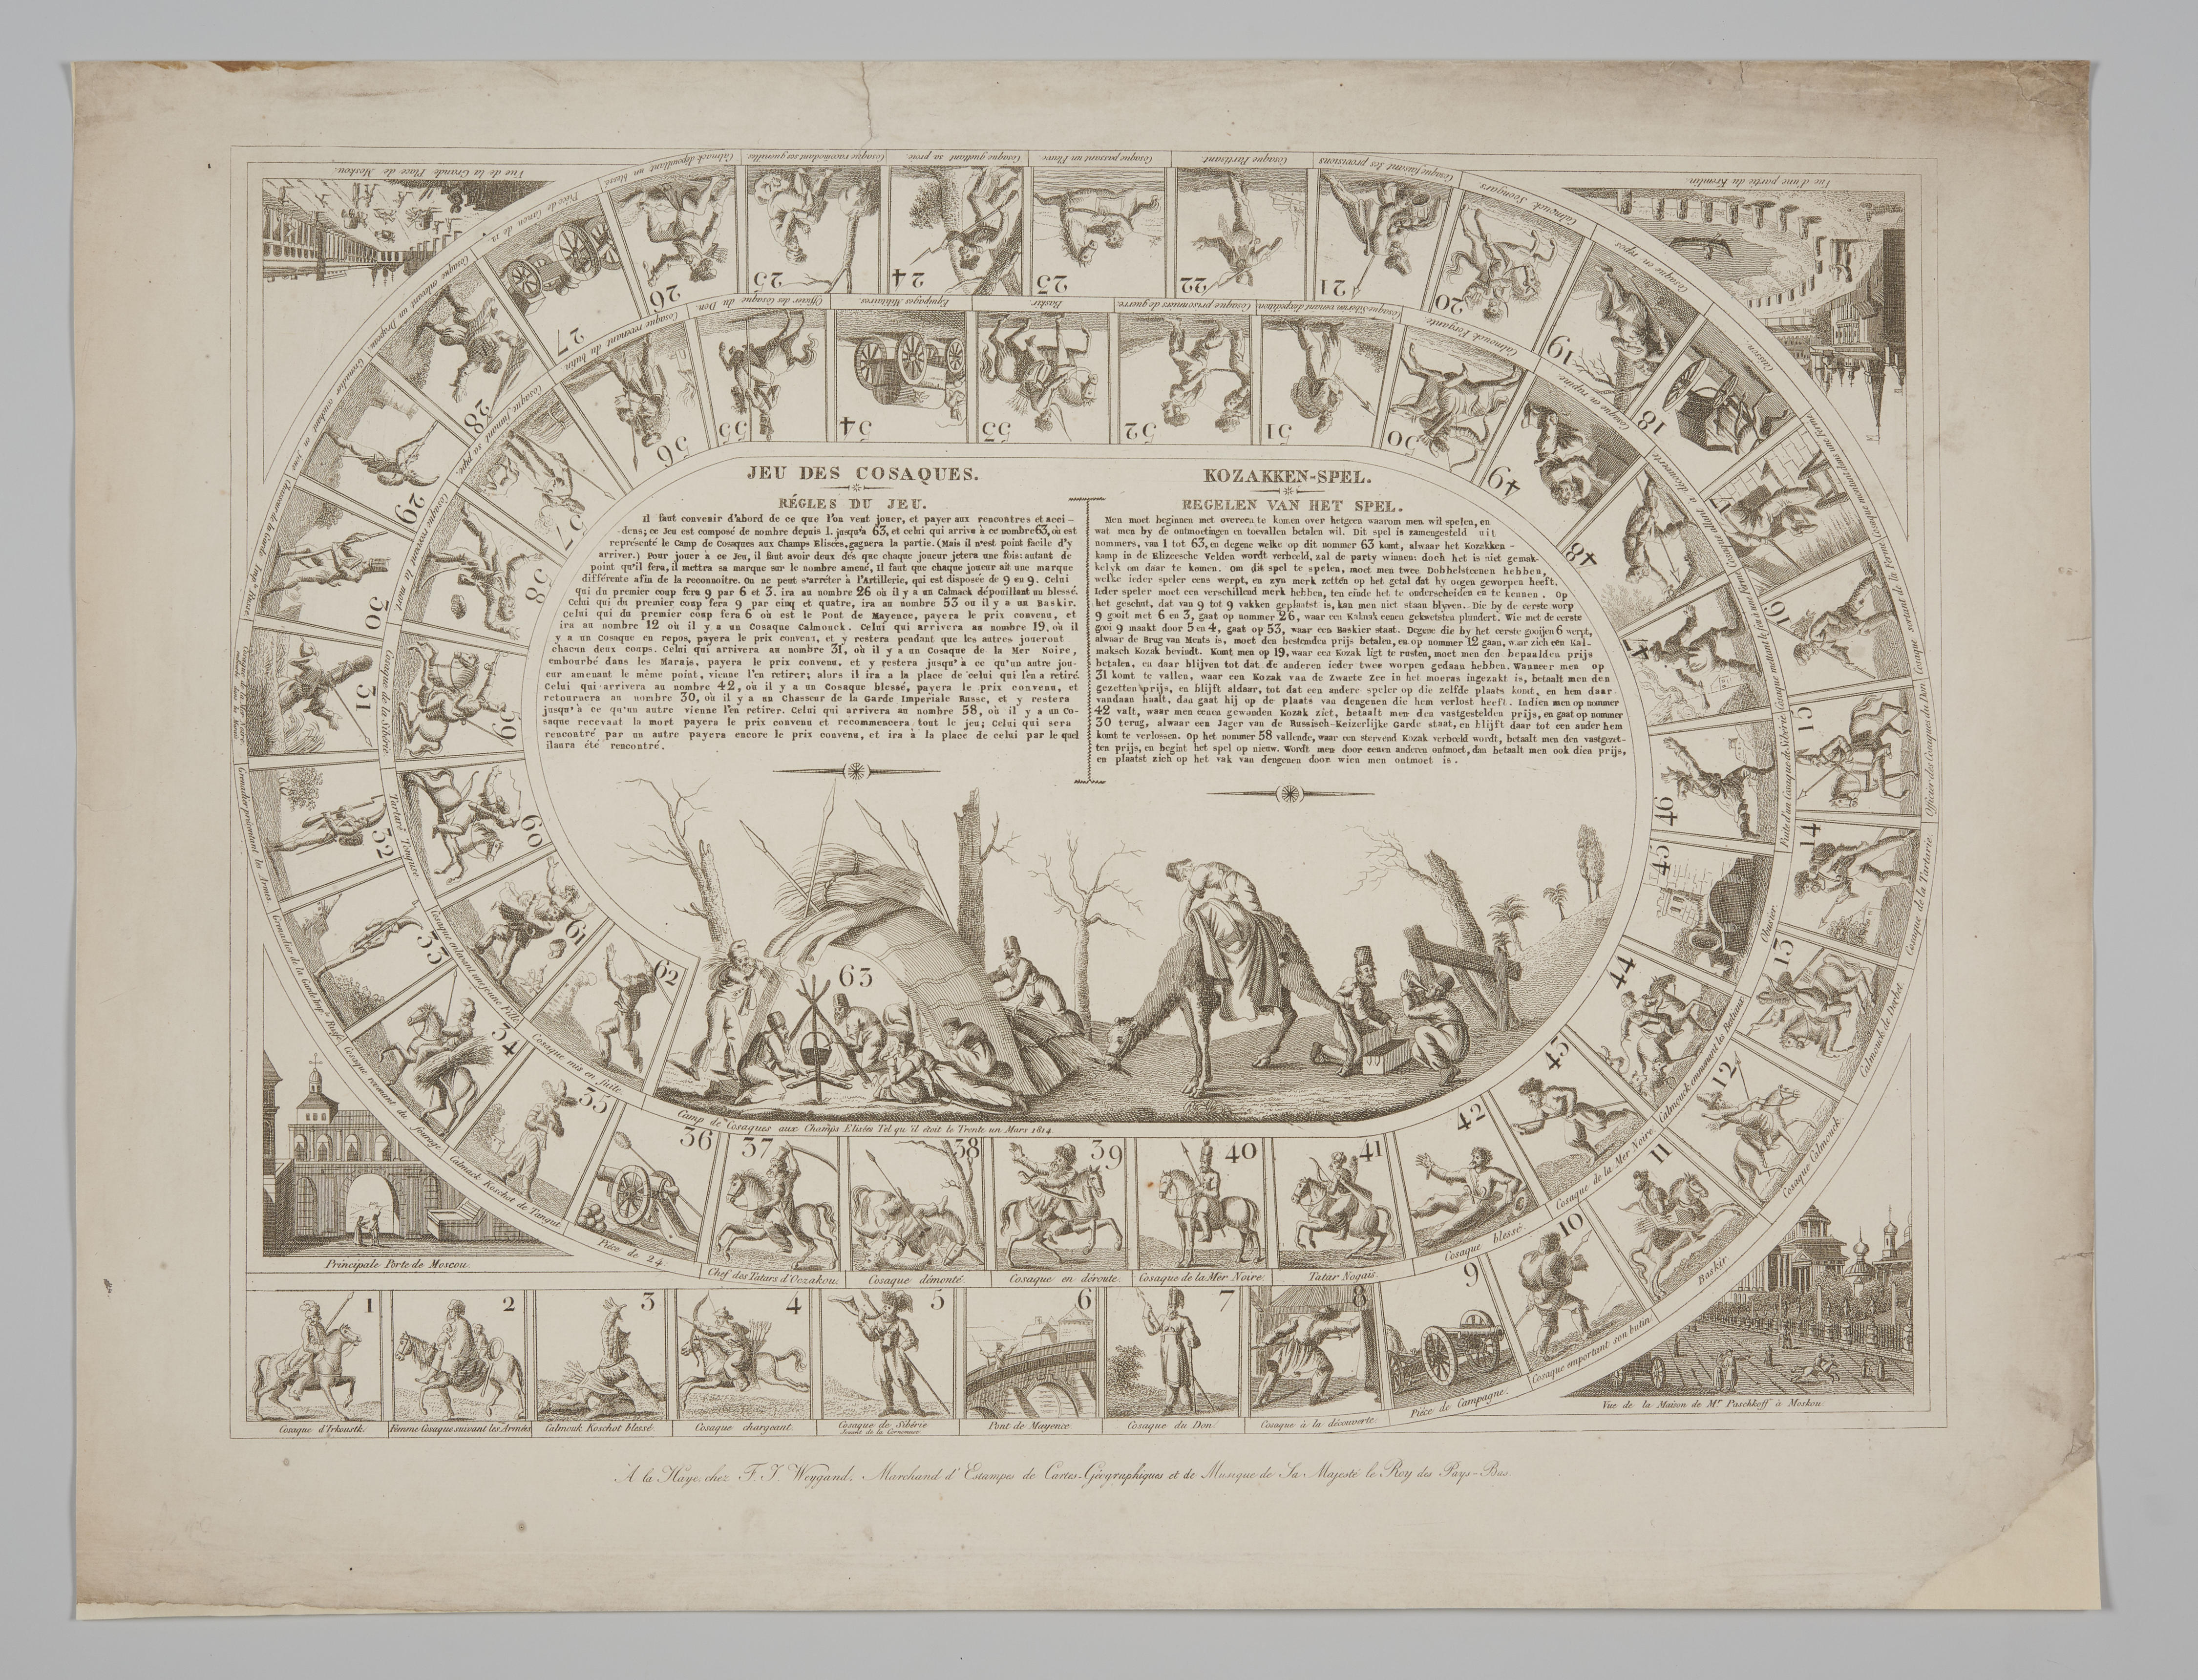 JEU DES COSAQUES.
RÉGLES DU JEU.
Il faut convenir d'abord de ce que l'on veut jouer, et payer aux rencontres et acci-
dens; ce Jeu est composé de nombre depuis 1. jusqu'a 63, et celui qui arrive à ce nombre 63, où est
représenté le Camp de Cosaques aux Champs Elisées, gagnera la partie. (Mais il n'est point facile d'y
arriver.) Pour jouer à ce Jeu, il faut avoir deux dés que chaque joneur jetera une fois: autant de
point qu'il fera, il mettra sa marque sur le nombre amené, il faut que chaque joneur ait une marque
différente afin de la reconnoître. On ne peut s'arrêter à l'Artillerie, qui est disposée de 9 en 9. Celui
qui du premier coup fera 9 par 6 et 3. ira au nombre 26 où il y a un Calmack dépouillant un blessé.
Celui qui du premier coup fera 9 par cinq et quatre, ira au nombre 53 ou il y a un Baskir.
celui qui du premier coup fera 6 où est le Pont de Mayence, payera le prix convenu, et
ira au nombre 12 où il y a un Cosaque Calmouck. Celui qui arrivera au nombre 19, où il
y a un Cosaque en repos, payera le prix convenu, et y restera pendant que les autres joueront
chacun deux coups. Celui qui arrivera au nombre 31, où il y a un Cosaque de la Mer Noire,
embourbé dans les Marais, payera le prix convenu, et y restera jusqu'à ce qu'un autre jou-
eur amenant le même point, vienne l'en retirer; alors il ira a la place de celui qui l'en a retiré.
Celui qui arrivera au nombre 42, où il y a un Cosaque blessé, payera le prix convenu, et
retournera au nombre 30, où il y a un Chasseur de la Garde Imperiale Russe, et y restera
jusqu'à ce qu'un autre vienne l'en retirer. Celui qui arrivera au nombre 58, où il y a un Co-
saque recevant la mort payera le prix convenu et recommencera tout le jeu; Celui qui sera
rencontré par un autre payera encore le prix convenu, et ira à la place de celui par le quel
il aura été rencontré.
KOZAKKEN-SPEL.
REGELEN VAN HET SPEL.
Men moet beginnen met overeen te komen over hetgeen waarom men wil spelen, en
wat men by de ontmoetingen en toevallen betalen wil. Dit spel is zamengesteld uit
nommers, van 1 tot 63, en degene welke op dit nommer 63 komt, alwaar het Kozakken-
kamp in de Elizeesche Velden wordt verbeeld, zal de party winnen: doch het is niet gemak-
kelyk om daar te komen. Om dit spel te spelen, moet men twee Dobbelsteenen hebben,
welke ieder speler eens werpt, en zyn merk zetten op het getal dat hy oogen geworpen heeft.
Ieder speler moet een verschillend merk hebben, ten einde het te onderscheiden en te kennen. Op
het geschut, dat van 9 tot 9 vakken geplaatst is, kan men niet staan blyven. Die by de eerste worp
9 gooit met 6 en 3, gaat op nommer 26, waar een Kalmuk eenen gekwetsten plundert. Wie met de eerste
gooi 9 maakt door 5 en 4, gaat op 53, waar een Baskier staat. Degene die by het eerste gooijen 6 werpt,
alwaar de Brug van Ments is, moet den bestemden prijs betalen, en op nommer 12 gaan, waar zich een Kal-
maksch Kozak bevindt. Komt men op 19, waar een Kozak ligt te rusten, moet men den bepaalden prijs
betalen, en daar blijven tot dat de anderen ieder twee worpen gedaan hebben. Wanneer men op
31 komt te vallen, waar een Kozak van de Zwarte Zee in het moeras ingezakt is, betaalt men den
gezetten prijs, en blijft aldaar, tot dat een andere speler op die zelfde plaats komt, en hem daar
vandaan haalt, dan gaat hij op de plaats van dengenen die hem verlost heeft. Indien men op nommer
42 valt, waar men eenen gewonden Kozak ziet, betaalt men den vastgestelden prijs, en gaat op nommer
30 terug, alwaar een Jager van de Russisch-Keizerlijke Garde staat, en blijft daar tot een ander hem
komt te verlossen. Op het nommer 58 vallende, waar een stervend Kozak verbeeld wordt, betaalt men den vastgezet-
ten prijs, en begint het spel op nieuw. Wordt men door eenen anderen ontmoet, dan betaalt men ook dien prijs,
en plaatst zich op het vak van dengenen door wien men ontmoet is.
1
Cosaque d'Irkoustk.
2
Femme Cosaque suivant les Armées
3
Calmouk Koschot blessé.
4
Cosaque chargeant.
5
Cosaque de Sibérie
Jouant de la Cornemuse
6
Pont de Mayence
7
Cosaque du Don
8
Cosaque à la découverte
9
Piéce de Campagne.
10
Cosaque emportant son butin
11
Baskir
12
Cosaque Calmouck
13
Calmouck de Derbet
14
Cosaque de la Tartarie.
15
Officier des Cosaques du Don
16
Cosaque sortant de la Ferme
17
Cosaque montant dans une Ferme
18
Caisson.
19
Cosaque en repos
20
Calmouck Soongars
21
Cosaque faisant ses provisions
22
Cosaque Partisant
23
Cosaque passant un Fleuve
24
Cosaque guettant sa proie
25
Cosaque racomodant ses guenilles
26
Calmack dépouillant un blessé
27
Piéce de Canon de 12
28
Cosaque enlevant un Drapeau
29
Grenadier couchant en joue
30
Chasseur de la Garde Imp. Russe
31
Cosaque de la Mer Noire
32
Grenadier présentant les Armes
33
Grenadier de la Garde Imp. Russe
34
Cosaque revenant du fourage
35
Calmuck Koschot de Tangut
36
Piéce de 24
37
Chef des Tatars d'Oczakou
38
Cosaque démonté.
39
Cosaque en déroute
40
Cosaque de la Mer Noire
41
Tatar Nogais
42
Cosaque blessé
43
Cosaque de la Mer Noire
44
Calmouck emmenant les Bestiaux
45
Obusier
46
Fuite d'un Cosaque de Sibérie
47
Cosaque mettant le feu à une ferme
48
Cosaque allant à découverte
49
Cosaque en rapine
50
Calmouck Torgauté
51
Cosaque Sibérien venant d'expédition
52
Cosaque prisonniers de guerre
53
Baskir
54
Equipages Militaires
55
Officier des Cosaque du Don
56
Cosaque revenant du butin
57
Cosaque fumant sa pipe
58
Cosaque recevant la mort
59
Cosaque de la Sibérie
60
Tartare Tonguse
61
Cosaque enlevant une jeune Fille
62
Cosaque mis en fuite
63
Camp de Cosaques aux Champs Elisées Tel qu'il étoit le Trente un Mars 1814
Vue de la Grande Place de Moskou.
Vue d'une partie du Kremlin
Principale Porte de Moscou.
Vue de la Maison de Mr Paschkoff à Moskou.
A la Haye chez F. J. Weygand, Marchand d'Estampes de Cartes-Géographiques et de Musique de Sa Majesté le Roy des Pays-Bas